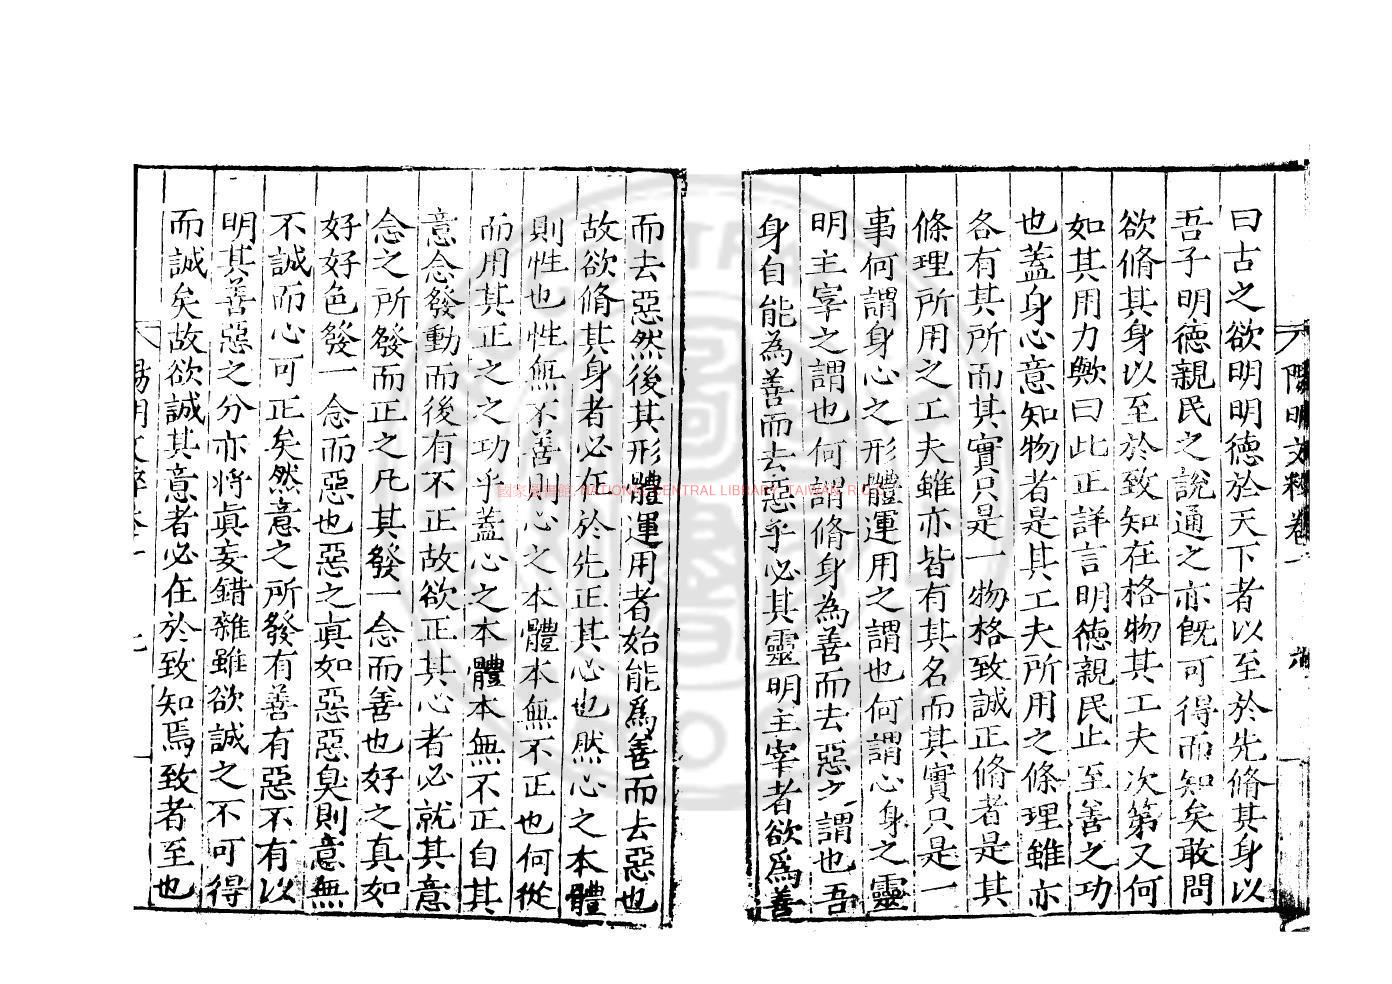 曰古之欲明明德於天下者以至於先脩其身以
吾子明德親民之說通之亦既可得而知矣敢問
欲脩其身以至於致知在格物其工夫次第又何
如其用力歟曰此正詳言明德親民止至善之功
也蓋身心意知物者是其工夫所用之條理雖亦
各有其所而其實只是一物格致誠正脩者是其
條理所用之工夫雖亦皆有其名而其實只是一
事何謂身心之形體運用之謂也何謂心身之靈
明主宰之謂也何謂脩身為善而去惡之謂也吾
身自能為善而去惡乎必其靈明主宰者欲為善
而去惡然後其形體運用者始能為善而去惡也
故欲脩其身者必在於先正其心也然心之本體
則性也性無不善則心之本體本無不正也何從
而用其正之之功乎蓋心之本體本無不正自其
意念發動而後有不正故欲正其心者必就其意
念之所發而正之凡其發一念而善也好之真如
好好色發一念而惡也惡之真如惡惡臭則意無
不誠而心可正矣然意之所發有善有惡不有以
明其善惡之分亦將真妄錯雜雖欲誠之不可得
而誠矣故欲誠其意者必在於致知焉致者至也
陽明文粹卷
國家圖書館 NATIONAL CENTRAL LIBRARY, TAIWAN, R.O.C